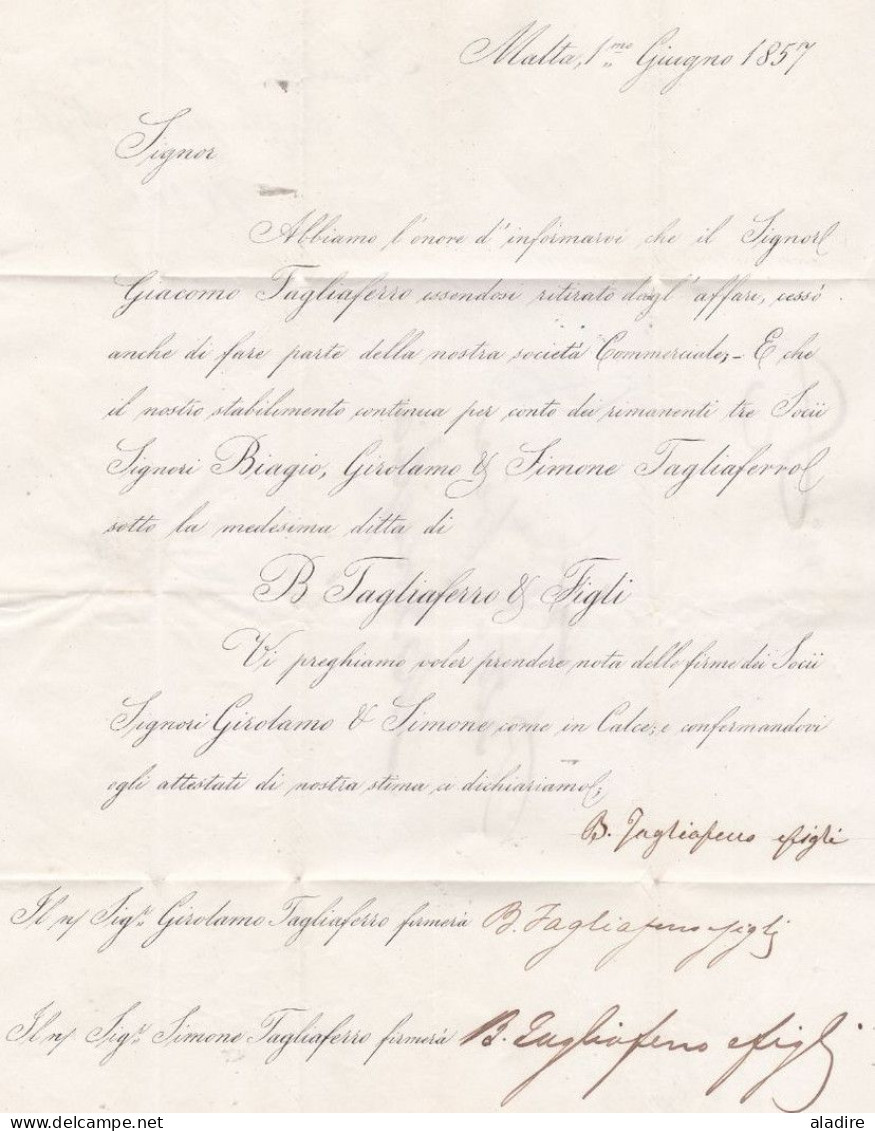 Malta, 1.mo Giugno 1857
Signor
Abbiamo l'onore d'informarvi che il Signor
Giacomo Tagliaferro essendosi ritirato dagl'affari, cessò
anche di fare parte della nostra società Commerciale;- E che
il nostro stabilimento continua per conto dei rimanenti tre Socii
Signori Biagio, Girolamo & Simone Tagliaferro
sotto la medesima ditta di
B Tagliaferro & Figli
Vi preghiamo voler prendere nota delle firme dei Socii
Signori Girolamo & Simone come in Calce; e confermandovi
gli attestati di nostra stima ci dichiariamo;
B. Tagliaferro e figli
Il n/ Sigr. Girolamo Tagliaferro firmerà B. Tagliaferro e figli
Il n/ Sigr. Simone Tagliaferro firmerà B. Tagliaferro e figli
aladire